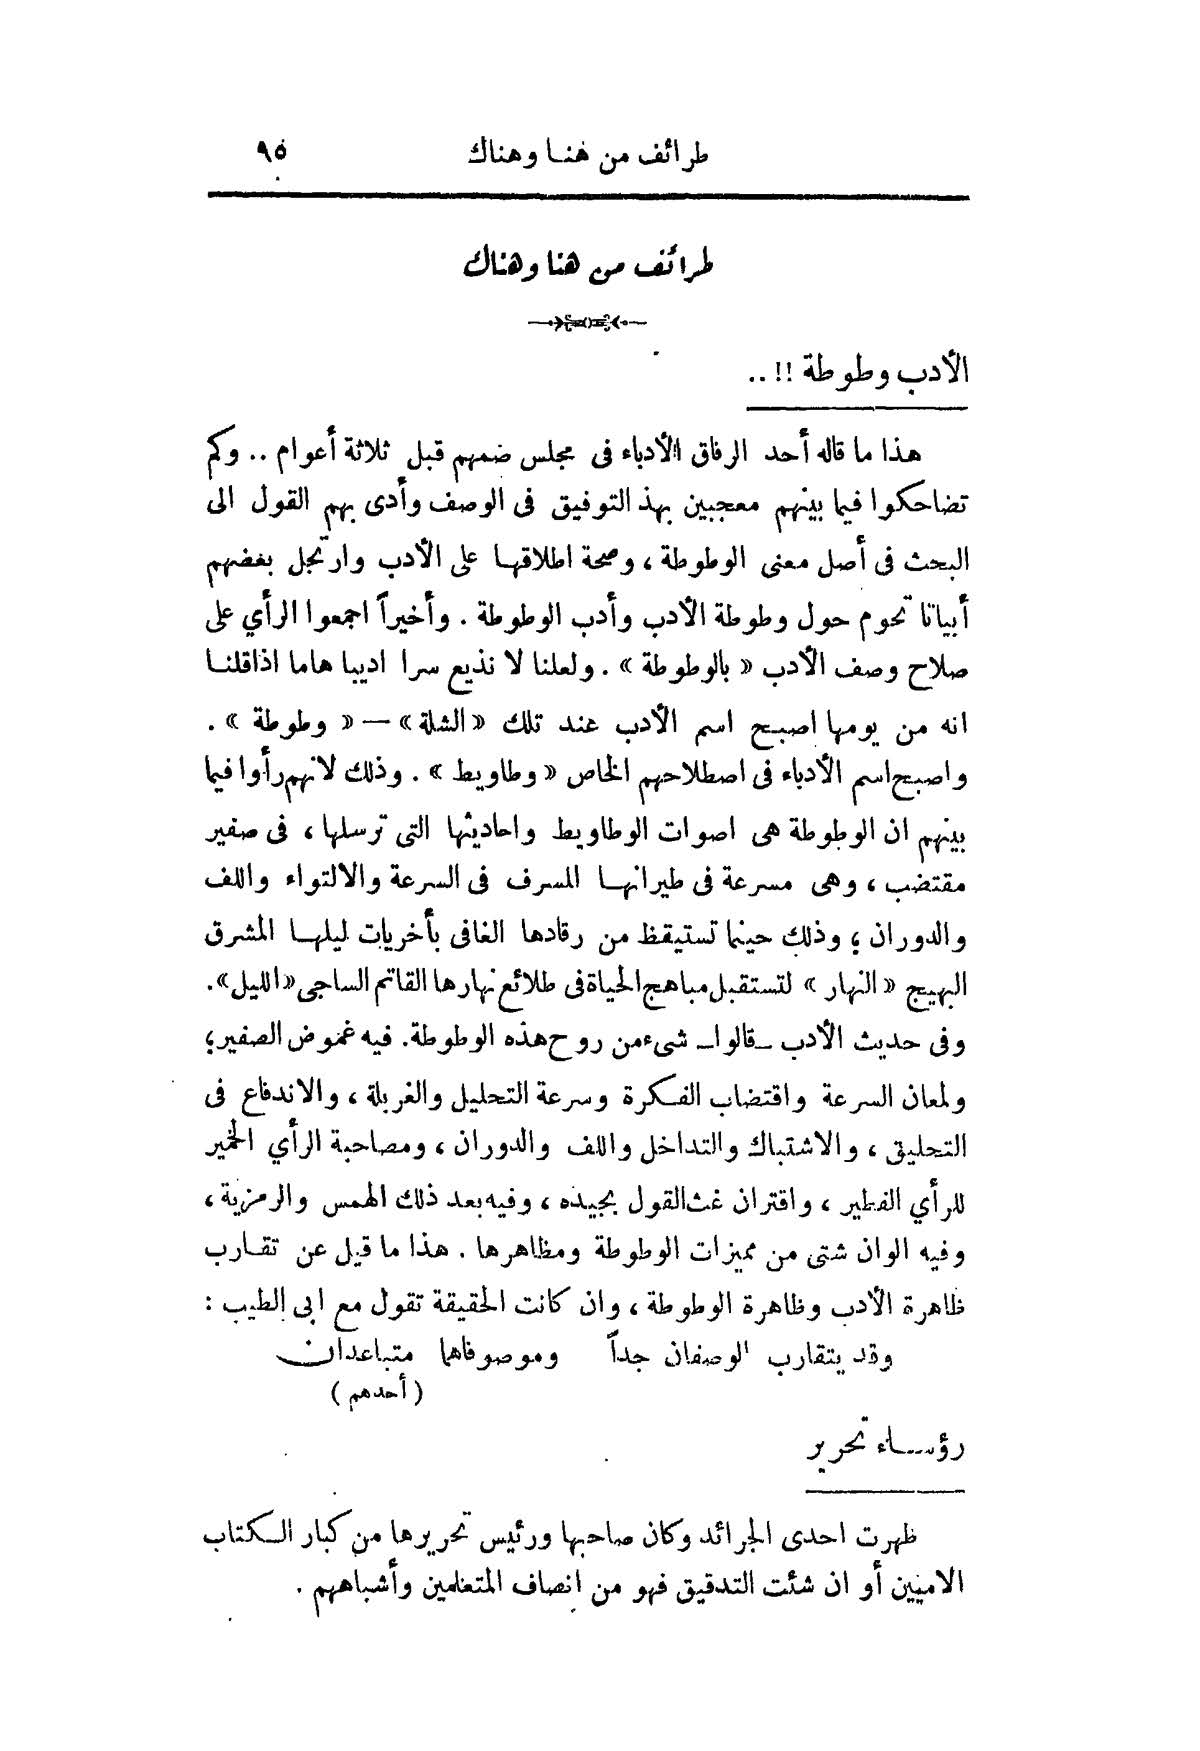 طرائف من هنا وهناك ٩٥
طرائف من هنا وهناك
الأدب وطوطة !! ..
هذا ما قاله أحد الرفاق الأدباء فى مجلس ضمهم قبل ثلاثة أعوام .. وكم
تضاحكوا فيما بينهم معجبين بهذ التوفيق فى الوصف وأدى بهم القول الى
البحث فى أصل معنى الوطوطة ، وصحة اطلاقها على الأدب وارتجل بعضهم
أبياتا تحوم حول وطوطة الأدب وأدب الوطوطة . وأخيراً اجمعوا الرأي على
صلاح وصف الأدب « بالوطوطة » . ولعلنا لا نذيع سرا اديبا هاما اذاقلنا
انه من يومها اصبح اسم الأدب عند تلك «الشلة» — « وطوطة » .
واصبح اسم الأدباء فى اصطلاحهم الخاص « وطاويط » . وذلك لانهم رأوا فيما
بينهم ان الوطوطة هى اصوات الوطاويط واحاديثها التى ترسلها ، فى صفير
مقتضب ، وهى مسرعة فى طيرانها المسرف فى السرعة والالتواء واللف
والدوران ؛ وذلك حينما تستيقظ من رقادها الغافى بأخريات ليلها المشرق
البهيج « النهار » لتستقبل مباهج الحياة فى طلائع نهارها القاتم الساجى «الليل».
وفى حديث الأدب ــ قالوا ــ شىء من روح هذه الوطوطة. فيه غموض الصفير؛
ولمعان السرعة واقتضاب الفكرة وسرعة التحليل والغربلة ، والاندفاع فى
التحليق ، والاشتباك والتداخل واللف والدوران ، ومصاحبة الرأي الخمير
للرأي الفطير ، واقتران غث القول بجيده ، وفيه بعد ذلك الهمس والرمزية ،
وفيه الوان شتى من مميزات الوطوطة ومظاهرها . هذا ما قيل عن تقارب
ظاهرة الأدب وظاهرة الوطوطة ، وان كانت الحقيقة تقول مع ابى الطيب :
وقد يتقارب الوصفان جداً وموصوفاهما متباعدان
( أحدهم )
رؤساء تحرير
ظهرت احدى الجرائد وكان صاحبها ورئيس تحريرها من كبار الكتاب
الاميين أو ان شئت التدقيق فهو من انصاف المتعلمين وأشباههم .